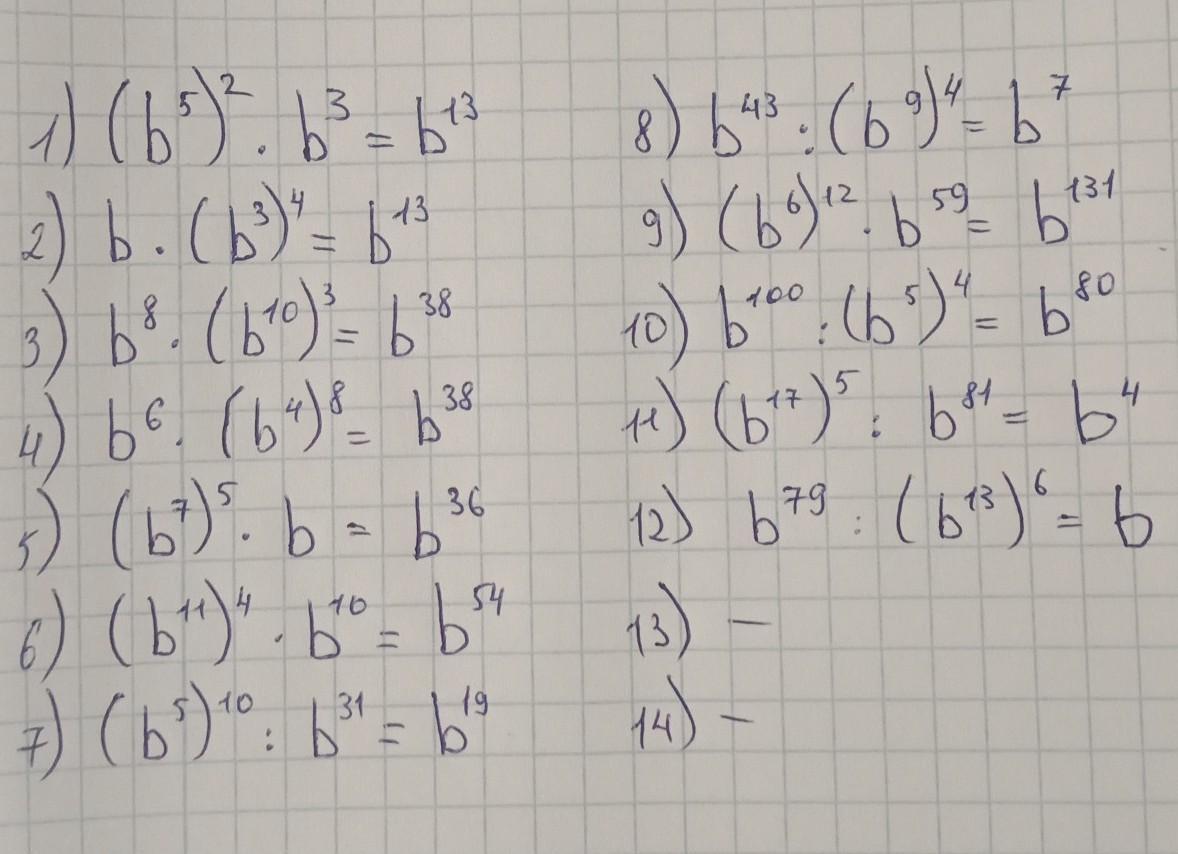 1) (b⁵)² · b³ = b¹³
2) b · (b³)⁴ = b¹³
3) b⁸ · (b¹⁰)³ = b³⁸
4) b⁶ · (b⁴)⁸ = b³⁸
5) (b⁷)⁵ · b = b³⁶
6) (b¹¹)⁴ · b¹⁰ = b⁵⁴
7) (b⁵)¹⁰ : b³¹ = b¹⁹
8) b⁴³ : (b⁹)⁴ = b⁷
9) (b⁶)¹² · b⁵⁹ = b¹³¹
10) b¹⁰⁰ : (b⁵)⁴ = b⁸⁰
11) (b¹⁷)⁵ : b⁸¹ = b⁴
12) b⁷⁹ : (b¹³)⁶ = b
13) –
14) –